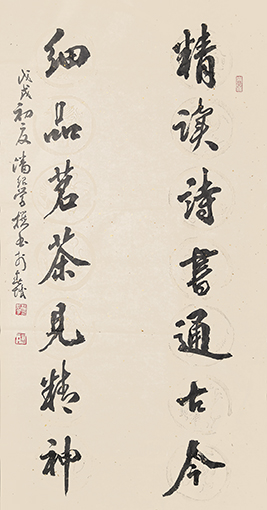 精读诗书通古今
细品茗茶见精神
戊戌初夏潘纪学撰书